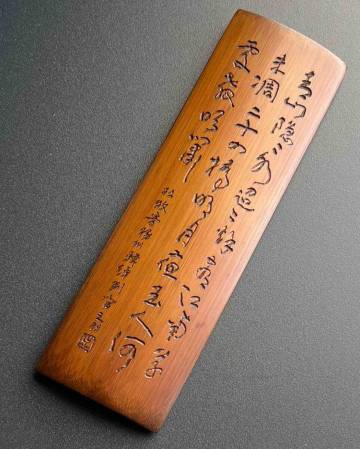 青山隱〻水迢〻秋盡江南草
未凋二十四橋明月夜玉人何
處教吹簫
杜牧寄揚州韓綽判官